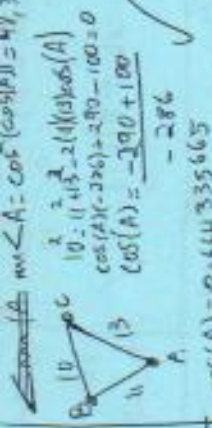 m∠A = cos⁻¹(cos(A)) = 48,
10² = 11² + 13² - 2(11)(13)cos(A)
cos(A)(-286) + 290 - 100 = 0
cos(A) = -290 + 100
-286
B
10
C
11
13
A
(A) = 0.664335665